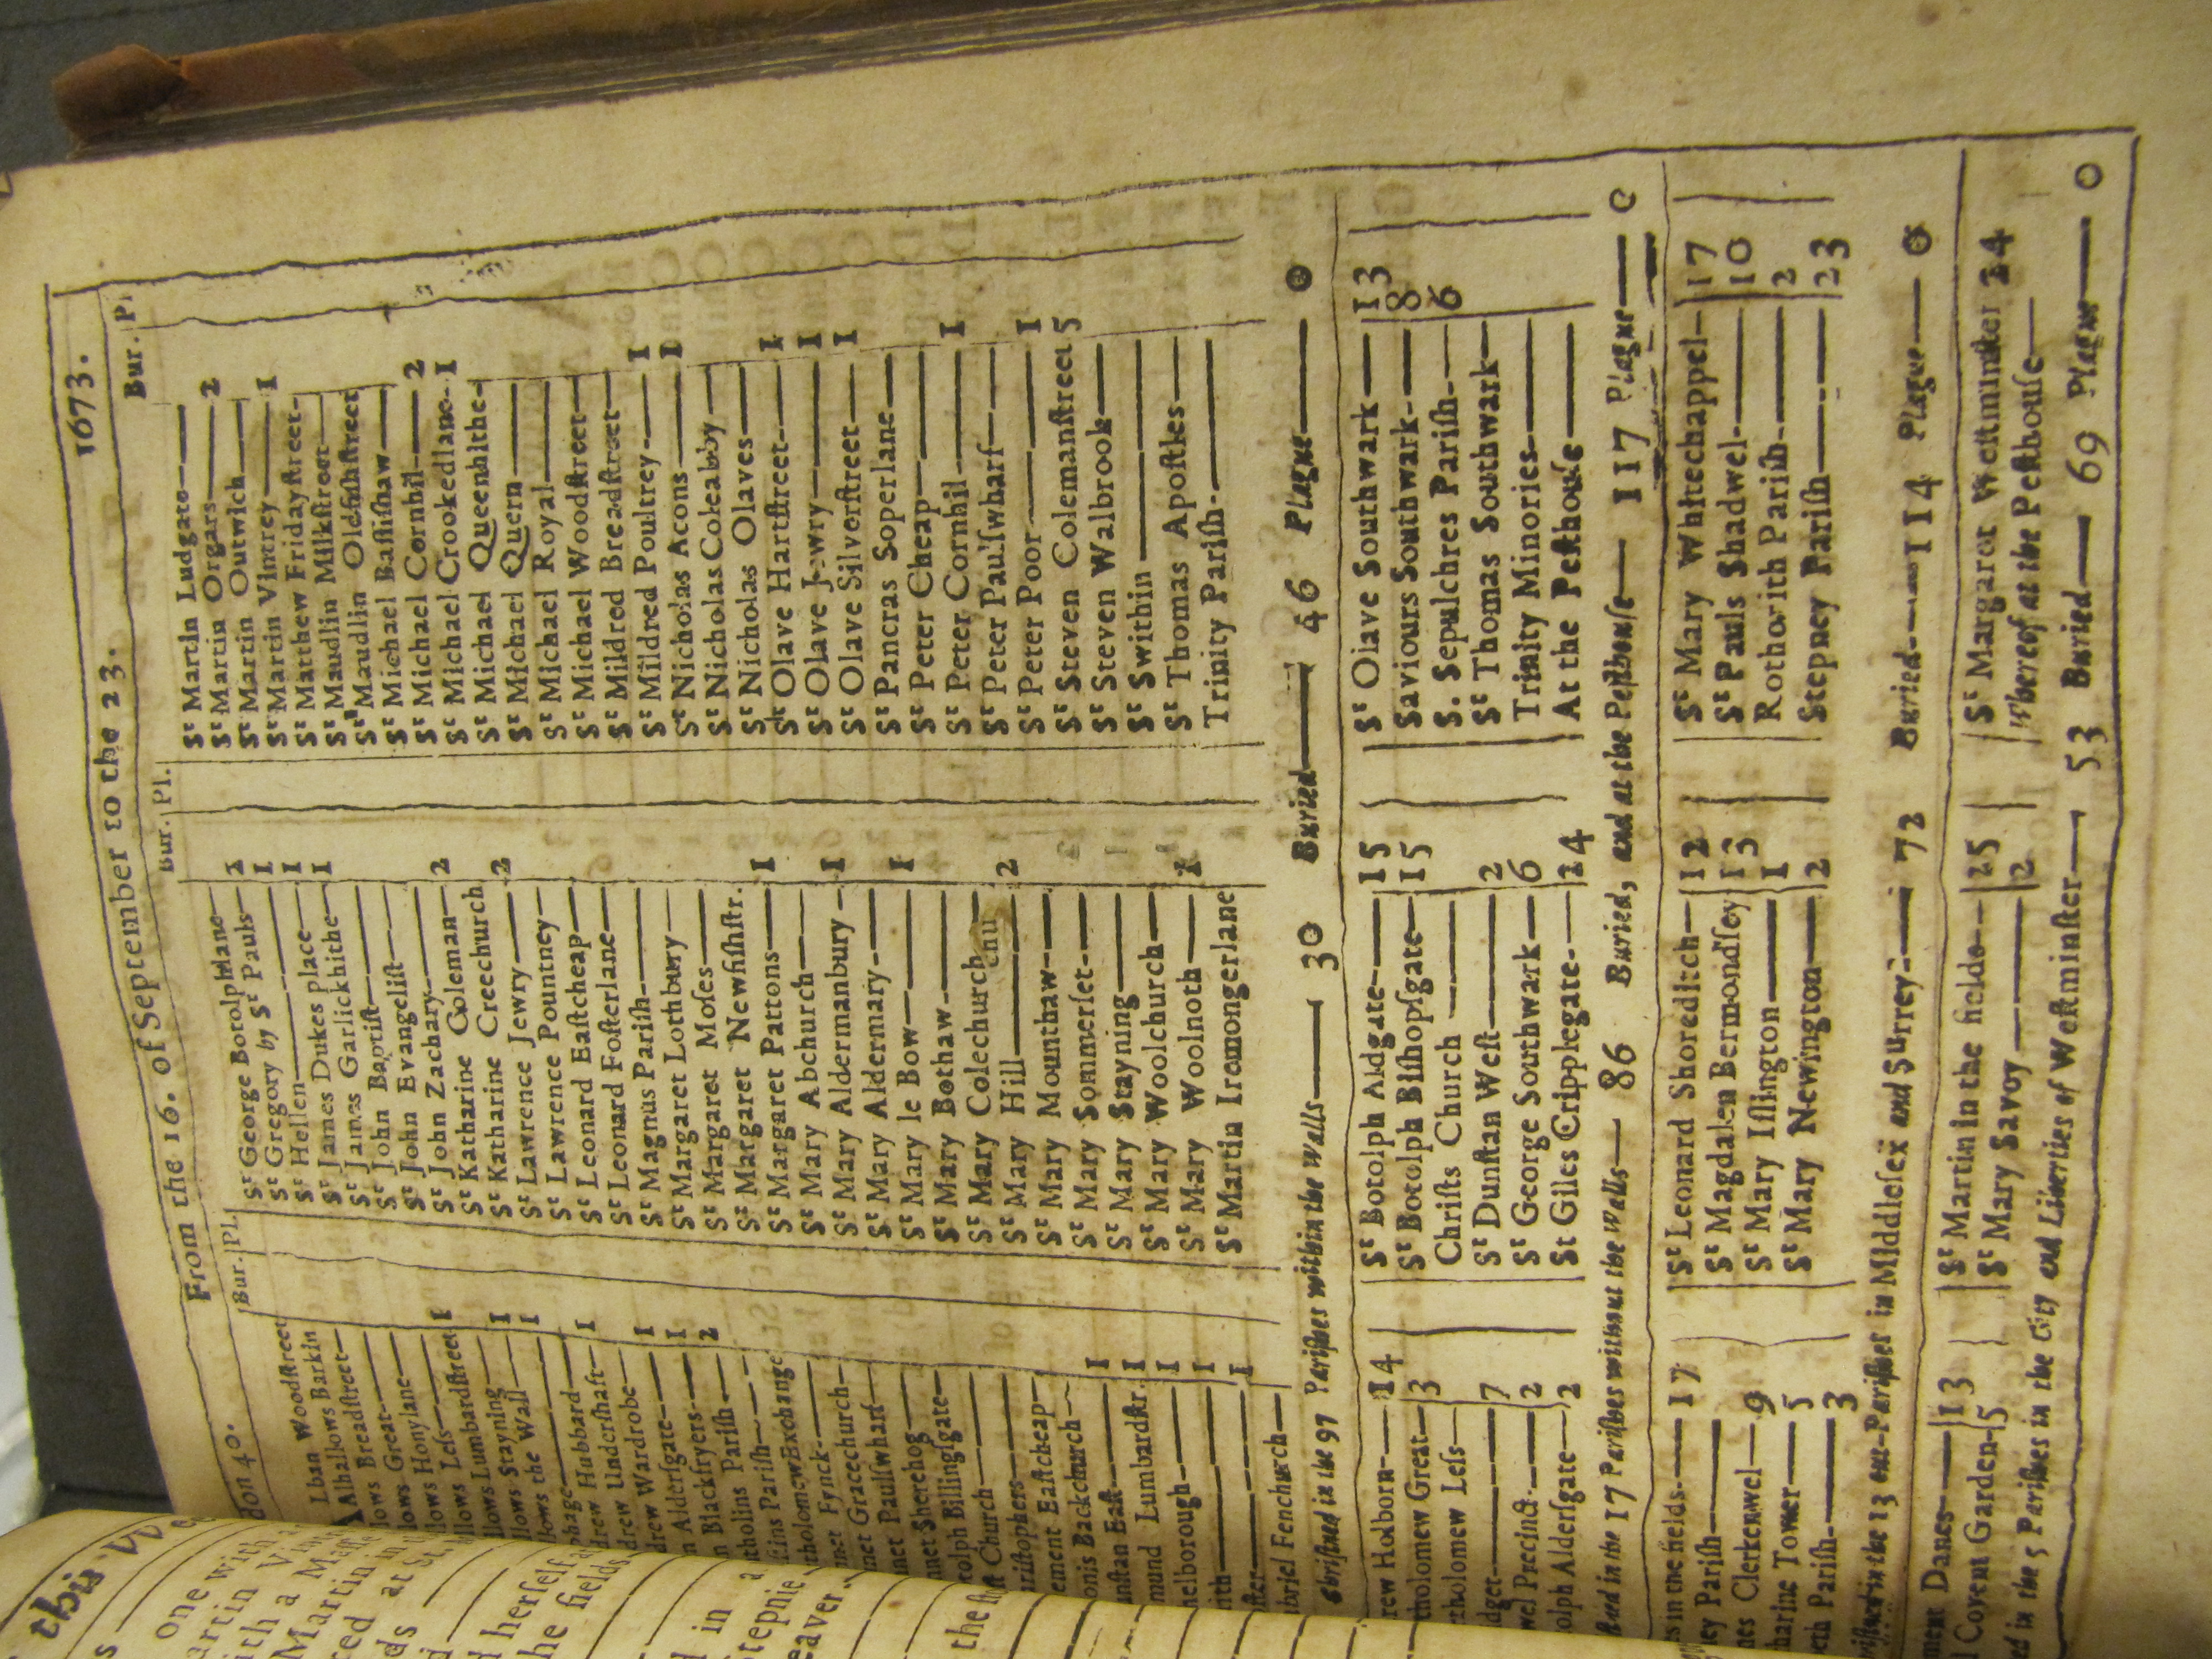 don 40.
From the 16. of September to the 23.
1673.
Bur. Pl.
Lban Woodſtreet
Alhallows Barkin
lows Breadſtreet
lows Great
lows Honylane
lows Leſs 1
llows Lumbardſtreet
llows Stayning 1
llows the Wall 1
phage
drew Hubbard 1
drew Underſhaft
drew Wardrobe 1
n Alderſgate 1
n Blackfryers 2
tholins Pariſh
tholomew Exchange
net Fynck
net Gracechurch
net Paulſwharf
nnet Sherehog
tolph Billingſgate
ſt Church
riſtophers
ement Eaſtcheap
onis Backchurch 1
unſtan Eaſt 1
mund Lumbardſtr. 1
nelborough 1
briel Fenchurch
Bur. Pl.
Sᵗ George Botolphlane 1
Sᵗ Gregory by Sᵗ Pauls 1
Sᵗ Hellen 1
Sᵗ James Dukes place 1
Sᵗ James Garlickhithe
Sᵗ John Baptiſt
Sᵗ John Evangeliſt
Sᵗ John Zachary 2
Sᵗ Katharine Coleman
Sᵗ Katharine Creechurch 2
Sᵗ Lawrence Jewry
Sᵗ Lawrence Pountney
Sᵗ Leonard Eaſtcheap
Sᵗ Leonard Foſterlane
Sᵗ Magnus Pariſh
Sᵗ Margaret Lothbury
Sᵗ Margaret Moſes
Sᵗ Margaret Newfiſhſtr.
Sᵗ Margaret Pattons 1
Sᵗ Mary Abchurch
Sᵗ Mary Aldermanbury 1
Sᵗ Mary Aldermary
Sᵗ Mary le Bow 1
Sᵗ Mary Bothaw
Sᵗ Mary Colechurch
Sᵗ Mary Hill 2
Sᵗ Mary Mounthaw
Sᵗ Mary Sommerſet
Sᵗ Mary Stayning
Sᵗ Mary Woolchurch
Sᵗ Mary Woolnoth 1
Sᵗ Martin Iremongerlane
Bur. Pl.
Sᵗ Martin Ludgate
Sᵗ Martin Orgars 2
Sᵗ Martin Outwich
Sᵗ Martin Vintrey 1
Sᵗ Matthew Fridayſtreet
Sᵗ Maudlin Milkſtreet
Sᵗ Maudlin Oldfiſhſtreet
Sᵗ Michael Baſſiſhaw
Sᵗ Michael Cornhil 2
Sᵗ Michael Crookedlane 1
Sᵗ Michael Queenhithe
Sᵗ Michael Quern
Sᵗ Michael Royal
Sᵗ Michael Woodſtreet
Sᵗ Mildred Breadſtreet
Sᵗ Mildred Poultrey 1
Sᵗ Nicholas Acons 1
Sᵗ Nicholas Coleabby
Sᵗ Nicholas Olaves
Sᵗ Olave Hartſtreet 1
Sᵗ Olave Jewry 1
Sᵗ Olave Silverſtreet 1
Sᵗ Pancras Soperlane
Sᵗ Peter Cheap
Sᵗ Peter Cornhil 1
Sᵗ Peter Paulſwharf
Sᵗ Peter Poor 1
Sᵗ Steven Colemanſtreet 5
Sᵗ Steven Walbrook
Sᵗ Swithin
Sᵗ Thomas Apoſtles
Trinity Pariſh
Chriſtned in the 97 Pariſhes within the Walls 30 Buried 46 Plague 0
rew Holborn 14
tholomew Great 3
rtholomew Leſs
dget 7
wel Precinct 2
olph Alderſgate 2
Sᵗ Botolph Aldgate 15
Sᵗ Botolph Biſhopſgate 15
Chriſts Church
Sᵗ Dunſtan Weſt 2
Sᵗ George Southwark 6
St Giles Cripplegate 24
Sᵗ Olave Southwark 13
Saviours Southwark 8
S. Sepulchres Pariſh 6
Sᵗ Thomas Southwark
Trinity Minories
At the Peſthouſe
ſtned in the 17 Pariſhes without the Walls 86 Buried, and at the Peſthouſe 117 Plague 0
s in the fields 17
ey Pariſh
nes Clerkenwel 9
harine Tower 5
eth Pariſh 3
Sᵗ Leonard Shoreditch 12
Sᵗ Magdalen Bermondſey 13
Sᵗ Mary Iſlington 1
Sᵗ Mary Newington 2
Sᵗ Mary Whitechappel 17
Sᵗ Pauls Shadwel 10
Rothorith Pariſh 2
Stepney Pariſh 23
riſtned in the 13 out-Pariſhes in Middleſex and Surrey 72 Buried 114 Plague 0
ment Danes 13
Covent Garden 5
Sᵗ Martin in the fields 25
Sᵗ Mary Savoy 2
Sᵗ Margaret Weſtminſter 24
Whereof at the Peſthouſe
ed in the 5 Pariſhes in the City and Liberties of Weſtminſter 53 Buried 69 Plague 0